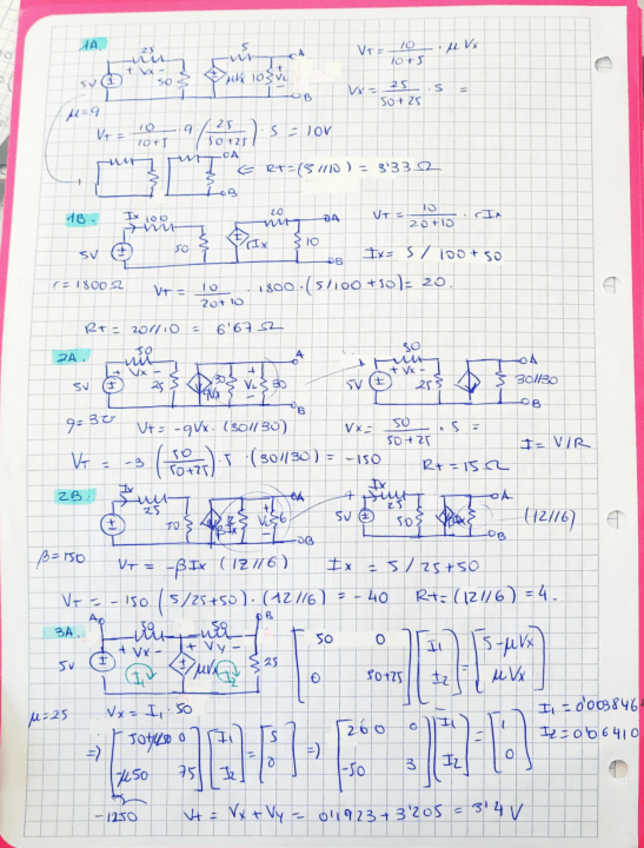 1A.
25
5
A
5V
+ Vx -
50
μVx
10
+ VL -
B
VT = 10/(10+5) · μVx
Vx = 25/(50+25) · 5 =
μ=9
VT = 10/(10+5) · 9 (25/(50+25)) · 5 = 10V
A
B
⇐ RT=(5//10) = 3'33 Ω
1B.
Ix 100
20
A
5V
50
rIx
10
B
VT = 10/(20+10) · rIx
Ix = 5 / 100+50
r = 1800 Ω
VT = 10/(20+10) · 1800 · (5/100+50) = 20.
RT = 20//10 = 6'67 Ω
2A.
50
A
5V
+ Vx -
25
gVx
30
+ VL -
30
B
50
A
5V
+ Vx -
25
30//30
B
g=3℧
VT = -gVx · (30//30)
Vx = 50/(50+25) · 5 =
I = V/R
VT = -3 (50/(50+25)) · 5 · (30//30) = -150
RT = 15 Ω
2B.
Ix
25
A
50
βIx
12
+ VL -
6
B
Ix
25
A
5V
50
βIx
(12//6)
B
β=150
VT = -βIx (12//6)
Ix = 5/25+50
VT = -150 (5/25+50) · (12//6) = -40
RT = (12//6) = 4.
3A.
A
50
50
B
5V
+ Vx -
+ Vy -
μVx
25
I1
I2
[50 0; 0 50+25] [I1; I2] = [5-μVx; μVx]
μ=25
Vx = I1 · 50
I1 = 0'003846
I2 = 0'06410
⇒ [50+μ50 0; -μ50 75] [I1; I2] = [5; 0] ⇒ [260 0; -50 3] [I1; I2] = [1; 0]
-1250
VT = Vx + Vy = 0'1923 + 3'205 = 3'4 V